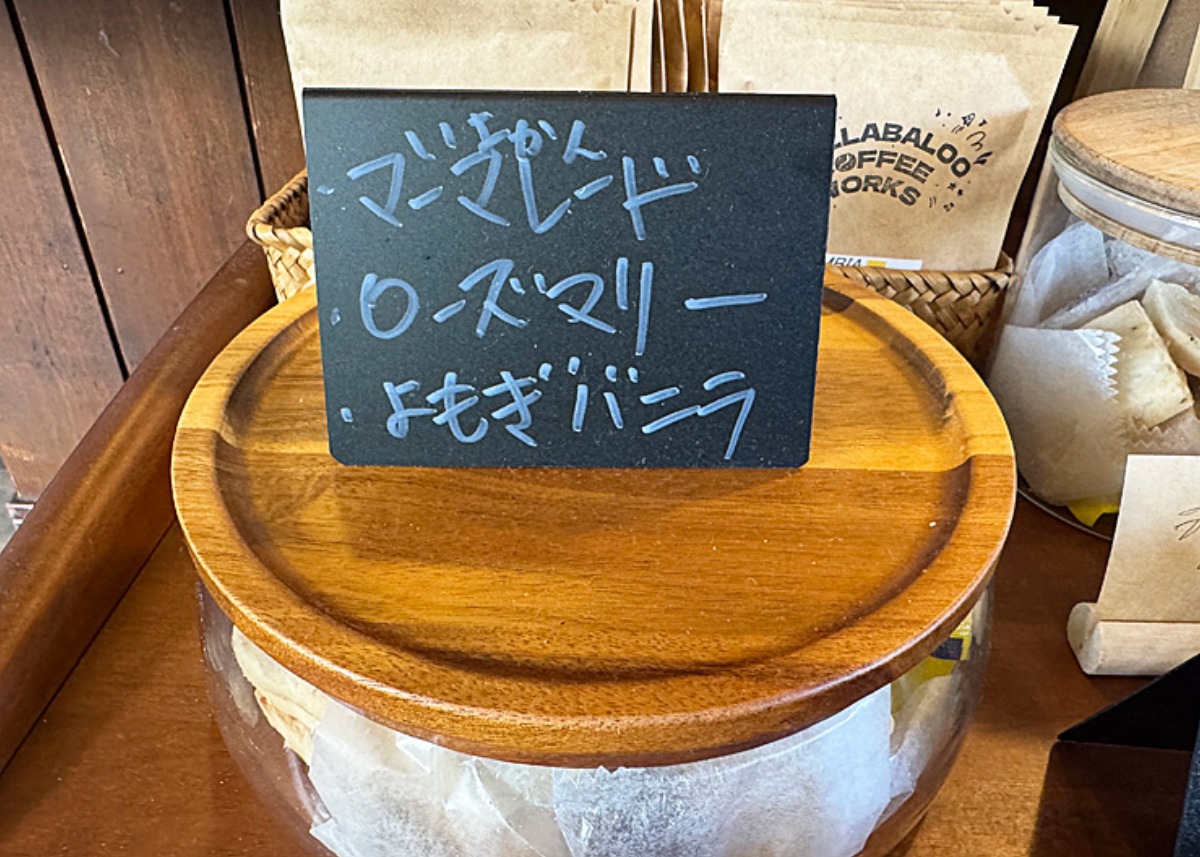 みかん
・マーマレード
・ローズマリー
・よもぎバニラ
LLABALOO
COFFEE
WORKS
MBIA